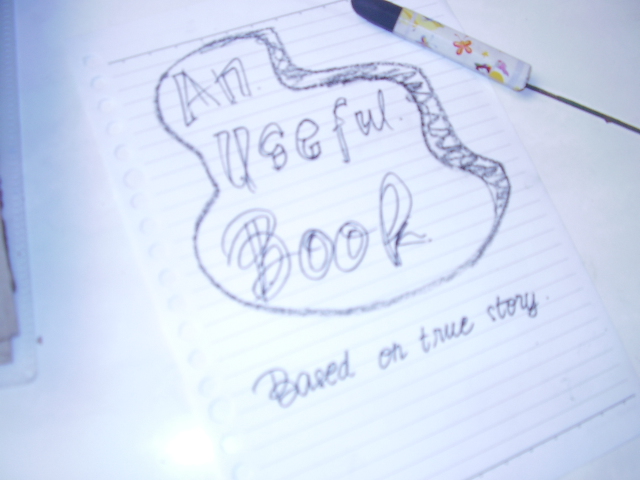 An
Useful
Book
Based on true story.